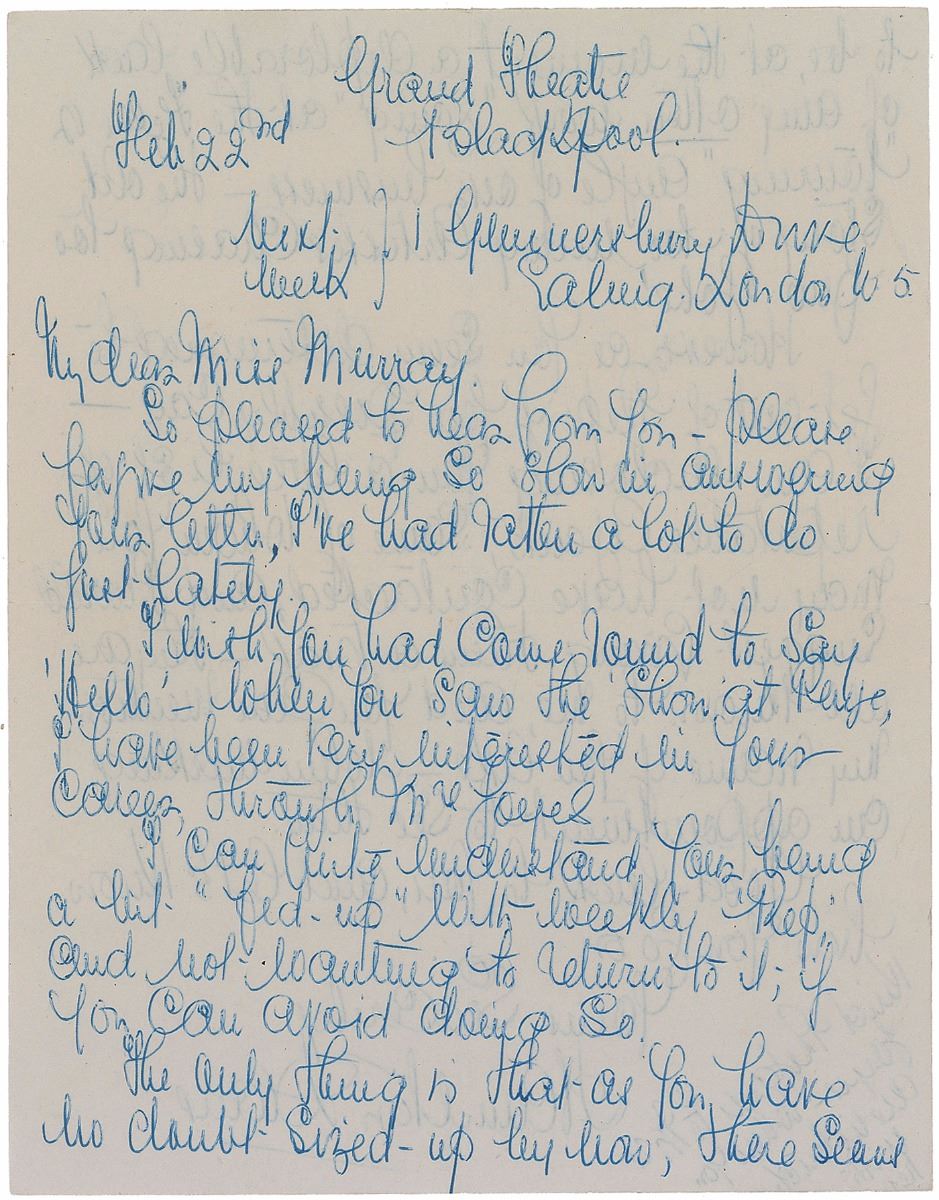 Grand Theatre
Feb 22nd Blackpool.
Next } 1 Gunnersbury Drive
Week } Ealing. London W 5.
My dear Miss Murray.
So pleased to hear from you – please
forgive my being so slow in answering
your letter, I've had rather a lot to do
just lately.
I wish you had come round to say
'Hello' – when you saw the show, at Penge,
I have been very interested in your
career, through Mrs Joyes
I can quite understand your being
a bit "fed-up" with weekly "Rep",
and not wanting to return to it; if
you can avoid doing so.
The only thing is that as you have
no doubt sized-up by now, there seems